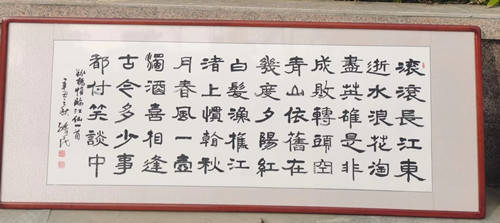 滾滾長江東
逝水浪花淘
盡英雄是非
成敗轉頭空
青山依舊在
幾度夕陽紅
白髮漁樵江
渚上慣看秋
月春風一壺
濁酒喜相逢
古今多少事
都付笑談中
楊慎臨江仙一首
辛丑之秋